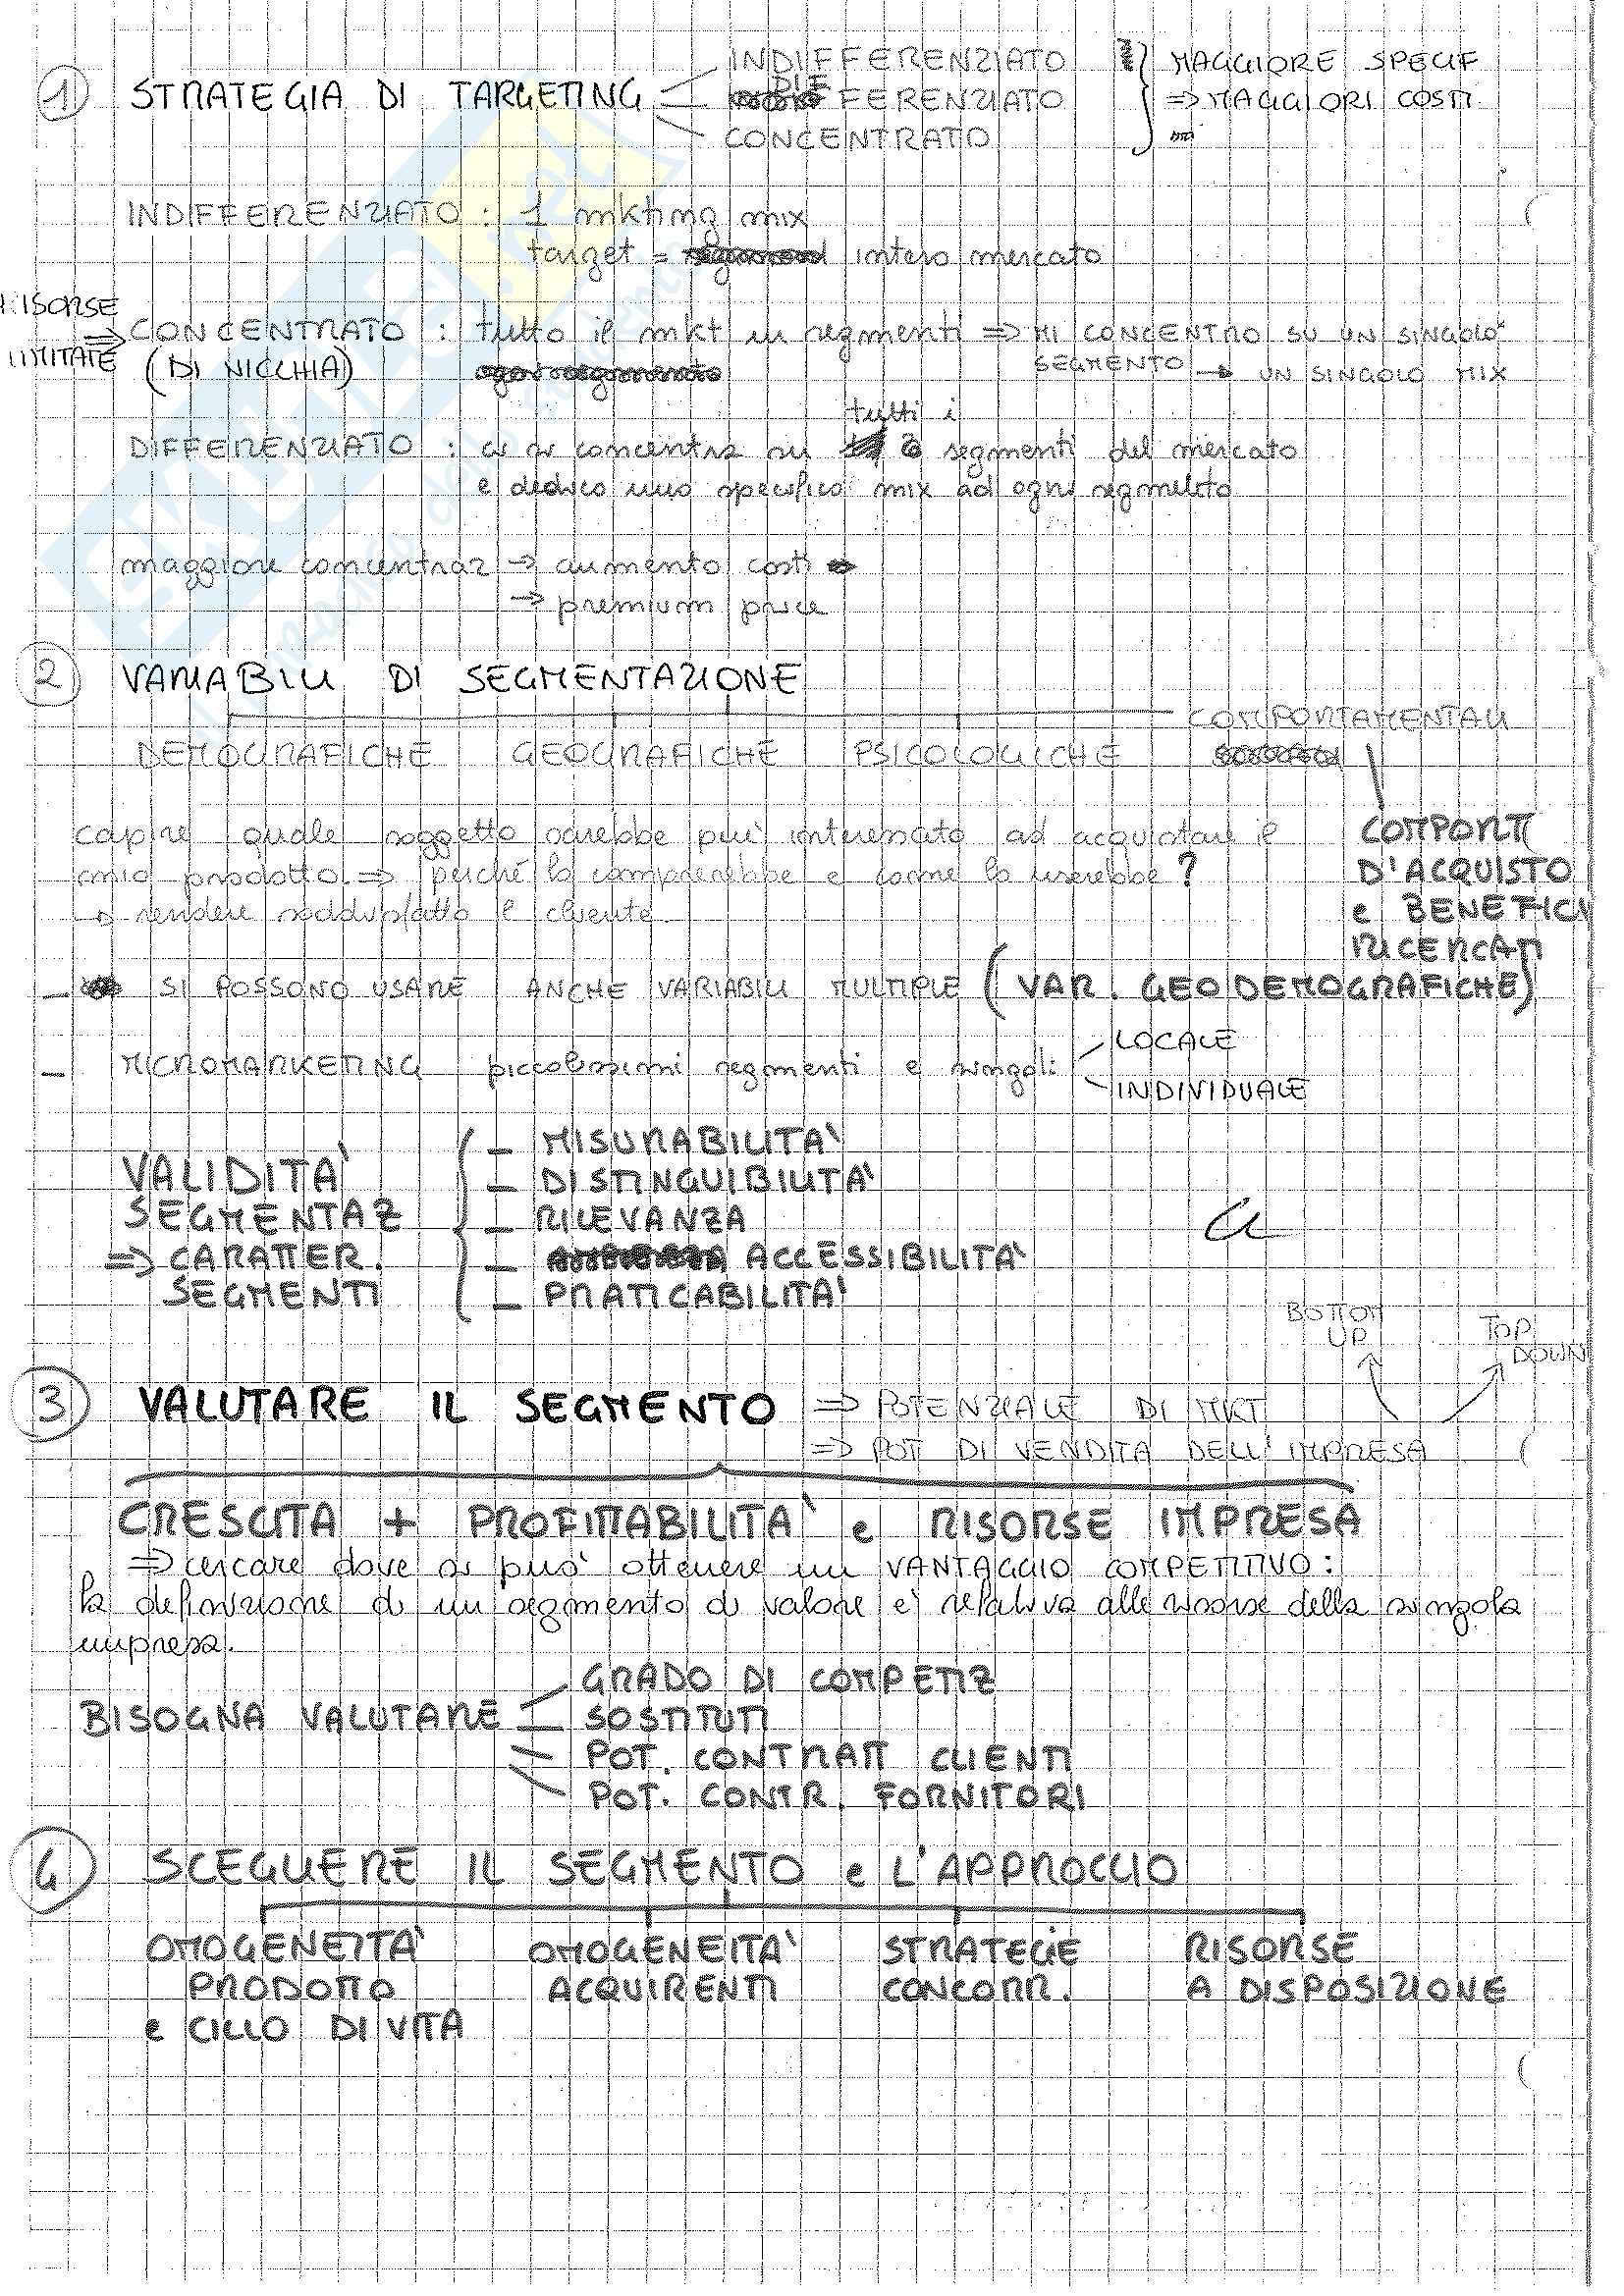 1) STRATEGIA DI TARGETING
INDIFFERENZIATO
DIFFERENZIATO
CONCENTRATO
MAGGIORE SPECIF
⇒ MAGGIORI COSTI
INDIFFERENZIATO : 1 mkting mix
target = intero mercato
RISORSE LIMITATE ⇒ CONCENTRATO : tutto il mkt in segmenti ⇒ MI CONCENTRO SU UN SINGOLO
(DI NICCHIA) SEGMENTO → UN SINGOLO MIX
tutti i
DIFFERENZIATO : ci si concentra su segmenti del mercato
e dedico uno specifico mix ad ogni segmento
maggiore concentraz → aumento costi
→ premium price
2 VARIABILI DI SEGMENTAZIONE
COMPORTAMENTALI
DEMOGRAFICHE GEOGRAFICHE PSICOLOGICHE
capire quale soggetto sarebbe più interessato ad acquistare il
mio prodotto ⇒ perché lo comprerebbe e come lo userebbe ?
→ rendere soddisfatto il cliente
COMPORT
D'ACQUISTO
e BENEFICI
RICERCATI
- SI POSSONO USARE ANCHE VARIABILI MULTIPLE (VAR. GEODEMOGRAFICHE)
- MICROMARKETING piccolissimi segmenti e singoli
LOCALE
INDIVIDUALE
VALIDITA'
SEGMENTAZ
⇒ CARATTER.
SEGMENTI
- MISURABILITA'
- DISTINGUIBILITA'
- RILEVANZA
- ACCESSIBILITA'
- PRATICABILITA'
BOTTOM
UP
TOP
DOWN
3 VALUTARE IL SEGMENTO ⇒ POTENZIALE DI MKT
⇒ POT DI VENDITA DELL'IMPRESA
CRESCITA + PROFITTABILITA' e RISORSE IMPRESA
⇒ cercare dove si può ottenere un VANTAGGIO COMPETITIVO :
la definizione di un segmento di valore è relativa alle risorse della singola
impresa.
BISOGNA VALUTARE
GRADO DI COMPETIZ
SOSTITUTI
POT. CONTRATT CLIENTI
POT. CONTR. FORNITORI
4 SCEGLIERE IL SEGMENTO e L'APPROCCIO
OMOGENEITA'
PRODOTTO
e CICLO DI VITA
OMOGENEITA'
ACQUIRENTI
STRATEGIE
CONCORR.
RISORSE
A DISPOSIZIONE